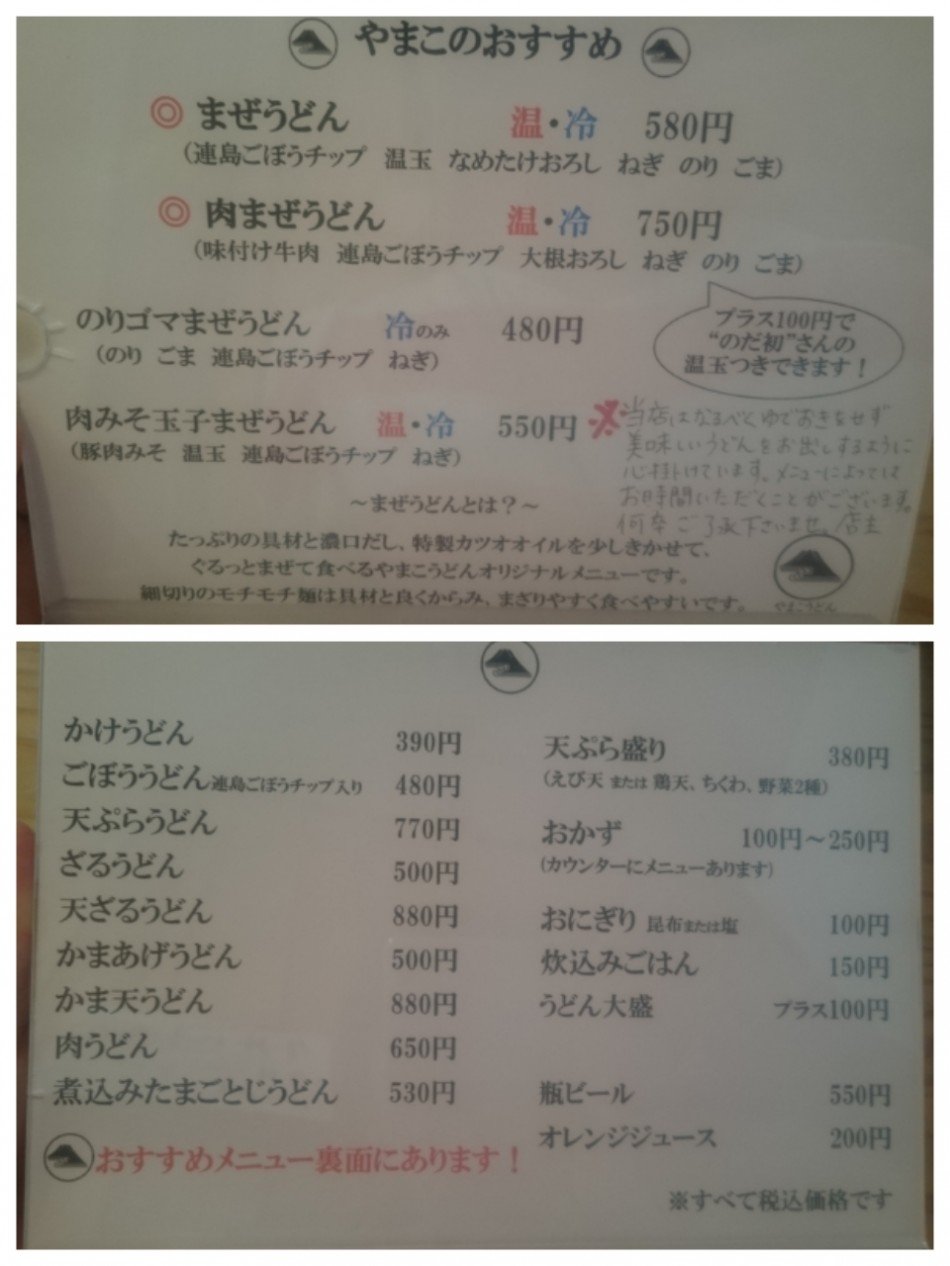 やまこのおすすめ
◎ まぜうどん 温・冷 580円
（連島ごぼうチップ 温玉 なめたけおろし ねぎ のり ごま）
◎ 肉まぜうどん 温・冷 750円
（味付け牛肉 連島ごぼうチップ 大根おろし ねぎ のり ごま）
のりゴマまぜうどん 冷のみ 480円
（のり ごま 連島ごぼうチップ ねぎ）
プラス100円で
“のだ初”さんの
温玉つきできます！
肉みそ玉子まぜうどん 温・冷 550円
（豚肉みそ 温玉 連島ごぼうチップ ねぎ）
※当店はなるべくゆでおきをせず
美味しいうどんをお出しするように
心掛けています。メニューによっては
お時間いただくことがございます。
何卒ご了承下さいませ。店主
～まぜうどんとは？～
たっぷりの具材と濃口だし、特製カツオオイルを少しきかせて、
ぐるっとまぜて食べるやまこうどんオリジナルメニューです。
細切りのモチモチ麺は具材と良くからみ、まざりやすく食べやすいです。
やまこうどん
かけうどん 390円
ごぼううどん連島ごぼうチップ入り 480円
天ぷらうどん 770円
ざるうどん 500円
天ざるうどん 880円
かまあげうどん 500円
かま天うどん 880円
肉うどん 650円
煮込みたまごとじうどん 530円
おすすめメニュー裏面にあります！
天ぷら盛り 380円
（えび天 または 鶏天、ちくわ、野菜2種）
おかず 100円～250円
（カウンターにメニューあります）
おにぎり 昆布または塩 100円
炊込みごはん 150円
うどん大盛 プラス100円
瓶ビール 550円
オレンジジュース 200円
※すべて税込価格です